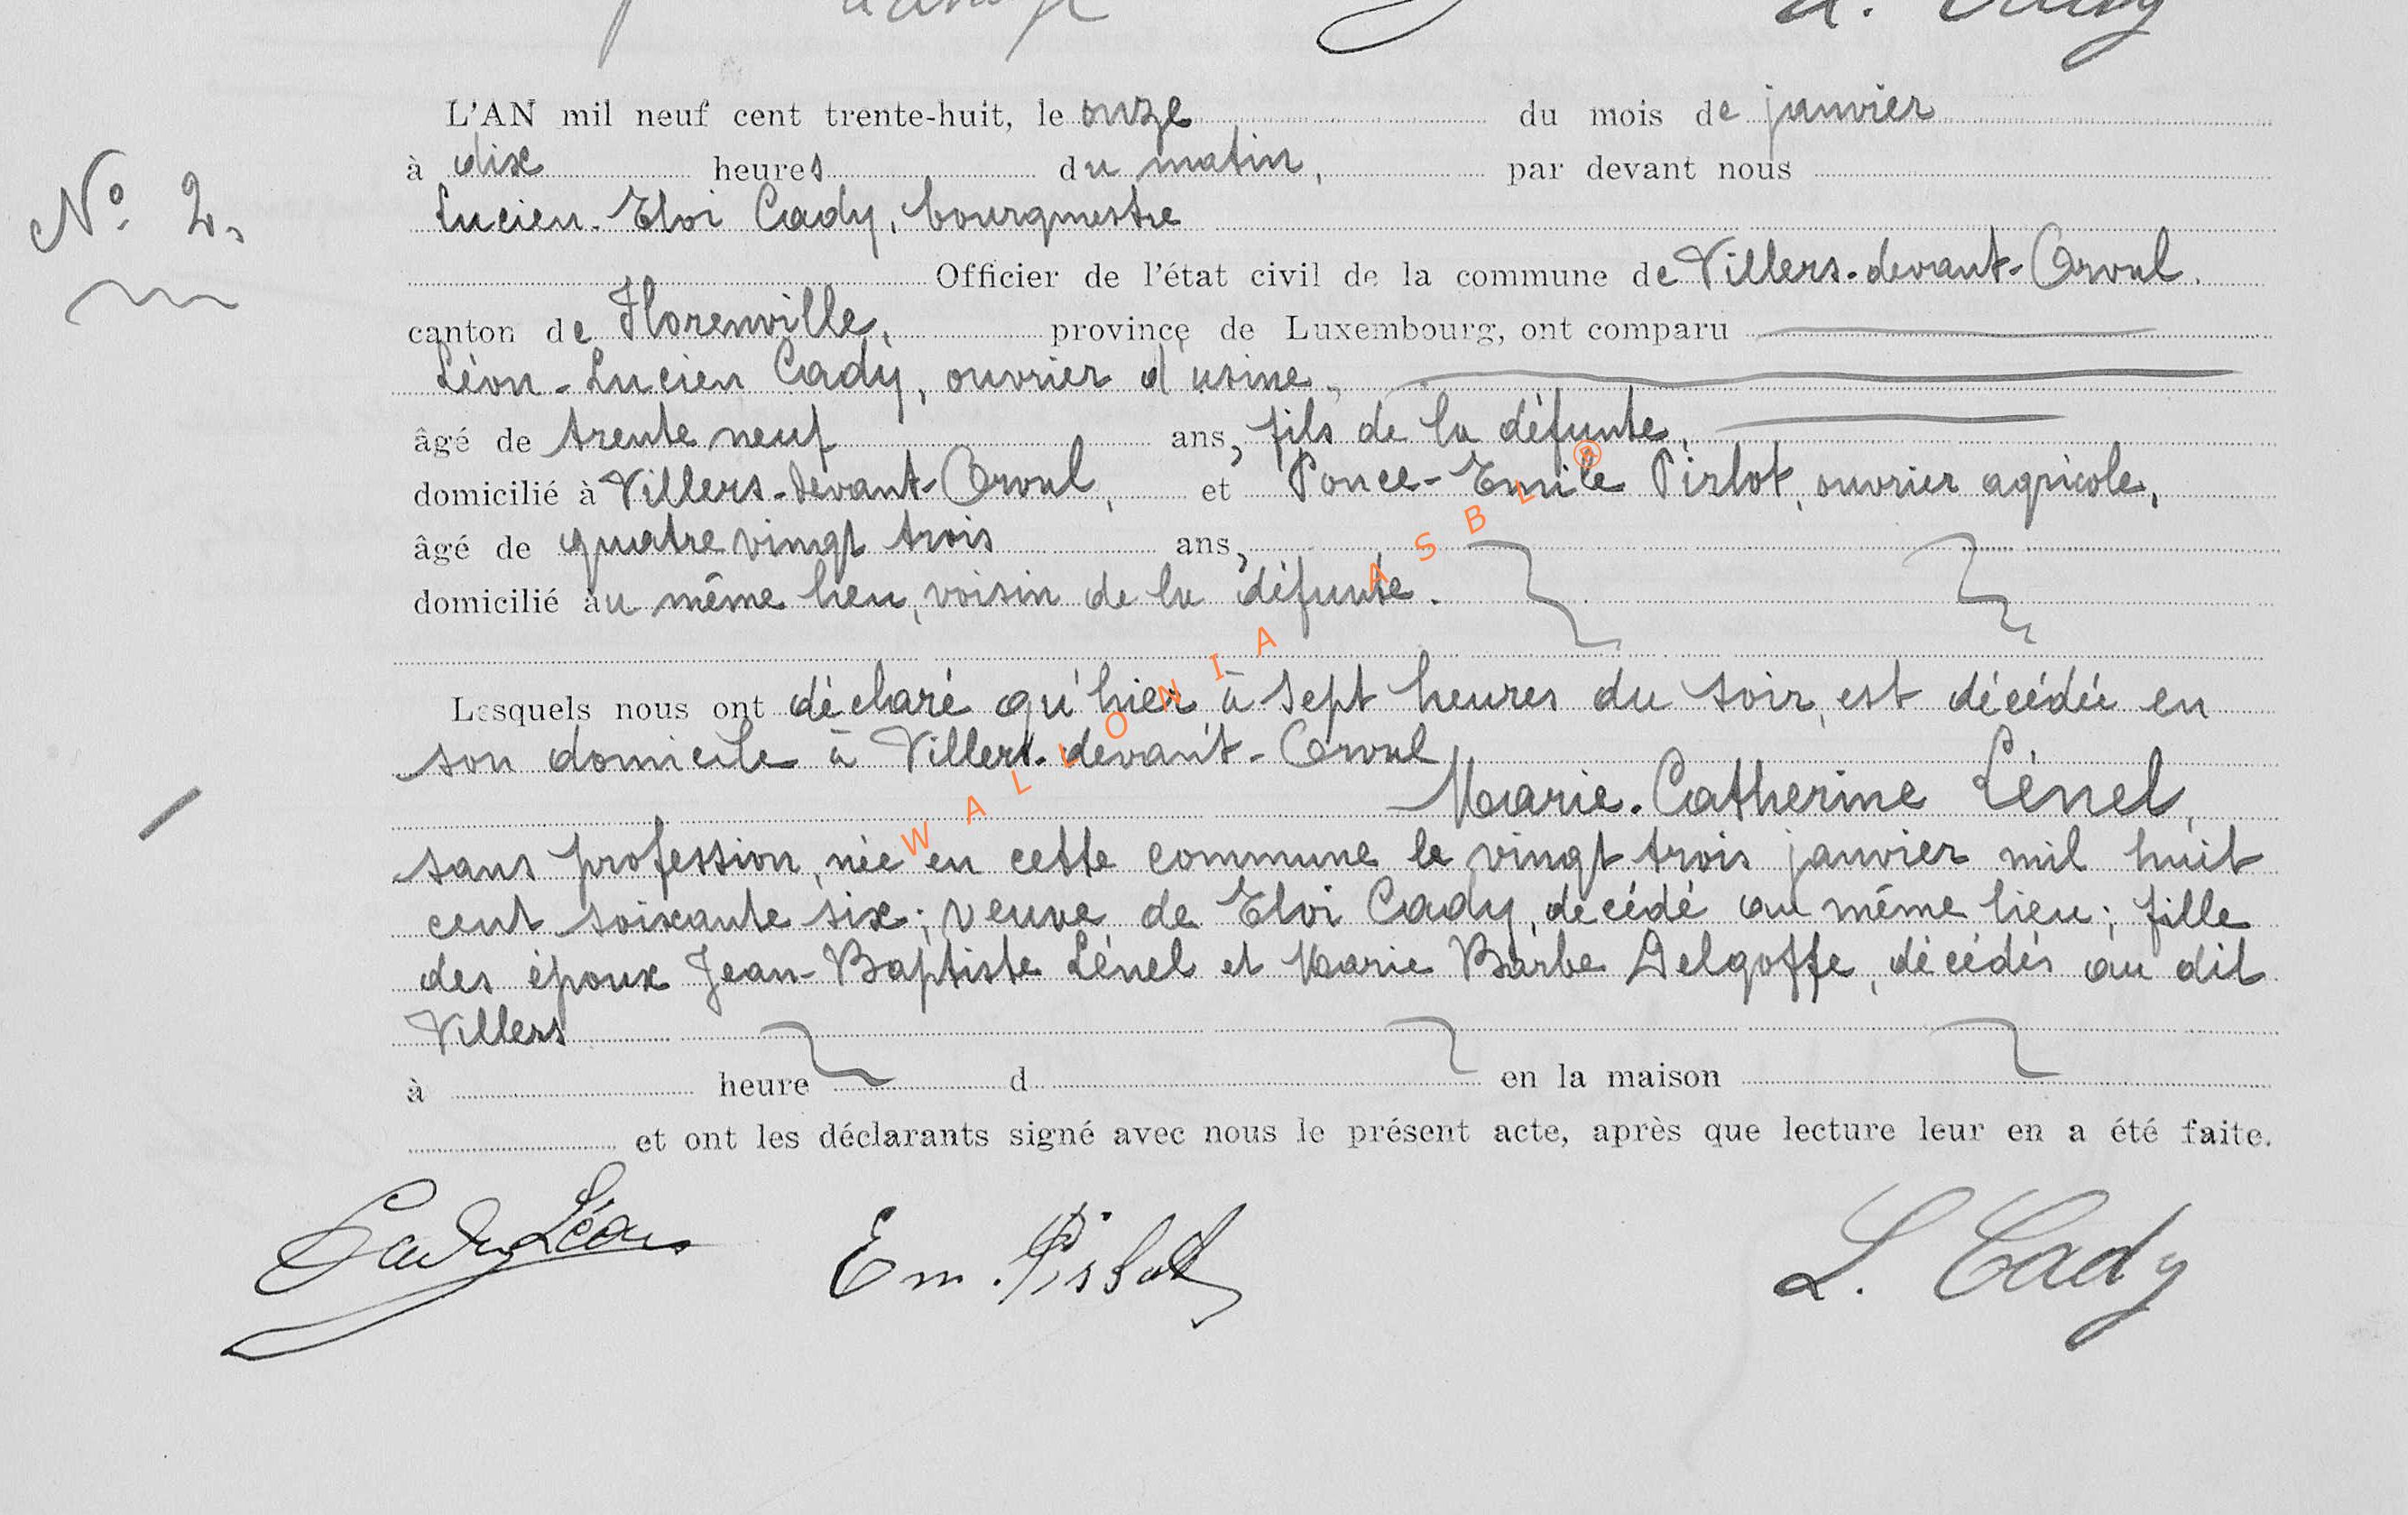 L. Cady
L'AN mil neuf cent trente-huit, le onze du mois de janvier
à dix heures du matin, par devant nous
N° 2.
Lucien-Eloi Cady, bourgmestre
Officier de l'état civil de la commune de Villers-devant-Orval.
canton de Florenville, province de Luxembourg, ont comparu
Léon-Lucien Cady, ouvrier d'usine,
âgé de trente neuf ans, fils de la défunte,
domicilié à Villers-devant-Orval, et Ponce-Emile Pirlot, ouvrier agricole,
âgé de quatre vingt trois ans,
domicilié au même lieu, voisin de la défunte.
Lesquels nous ont déclaré qu'hier à sept heures du soir, est décédée en
son domicile à Villers-devant-Orval
Marie-Catherine Lénel,
sans profession, née en cette commune le vingt trois janvier mil huit
cent soixante six; veuve de Eloi Cady, décédé au même lieu; fille
des époux Jean-Baptiste Lénel et Marie Barbe Delgoffe, décédés au dit
Villers
à heure d en la maison
et ont les déclarants signé avec nous le présent acte, après que lecture leur en a été faite.
Cady Léon Em. Pirlot L. Cady
WALLONIA ASBL ®